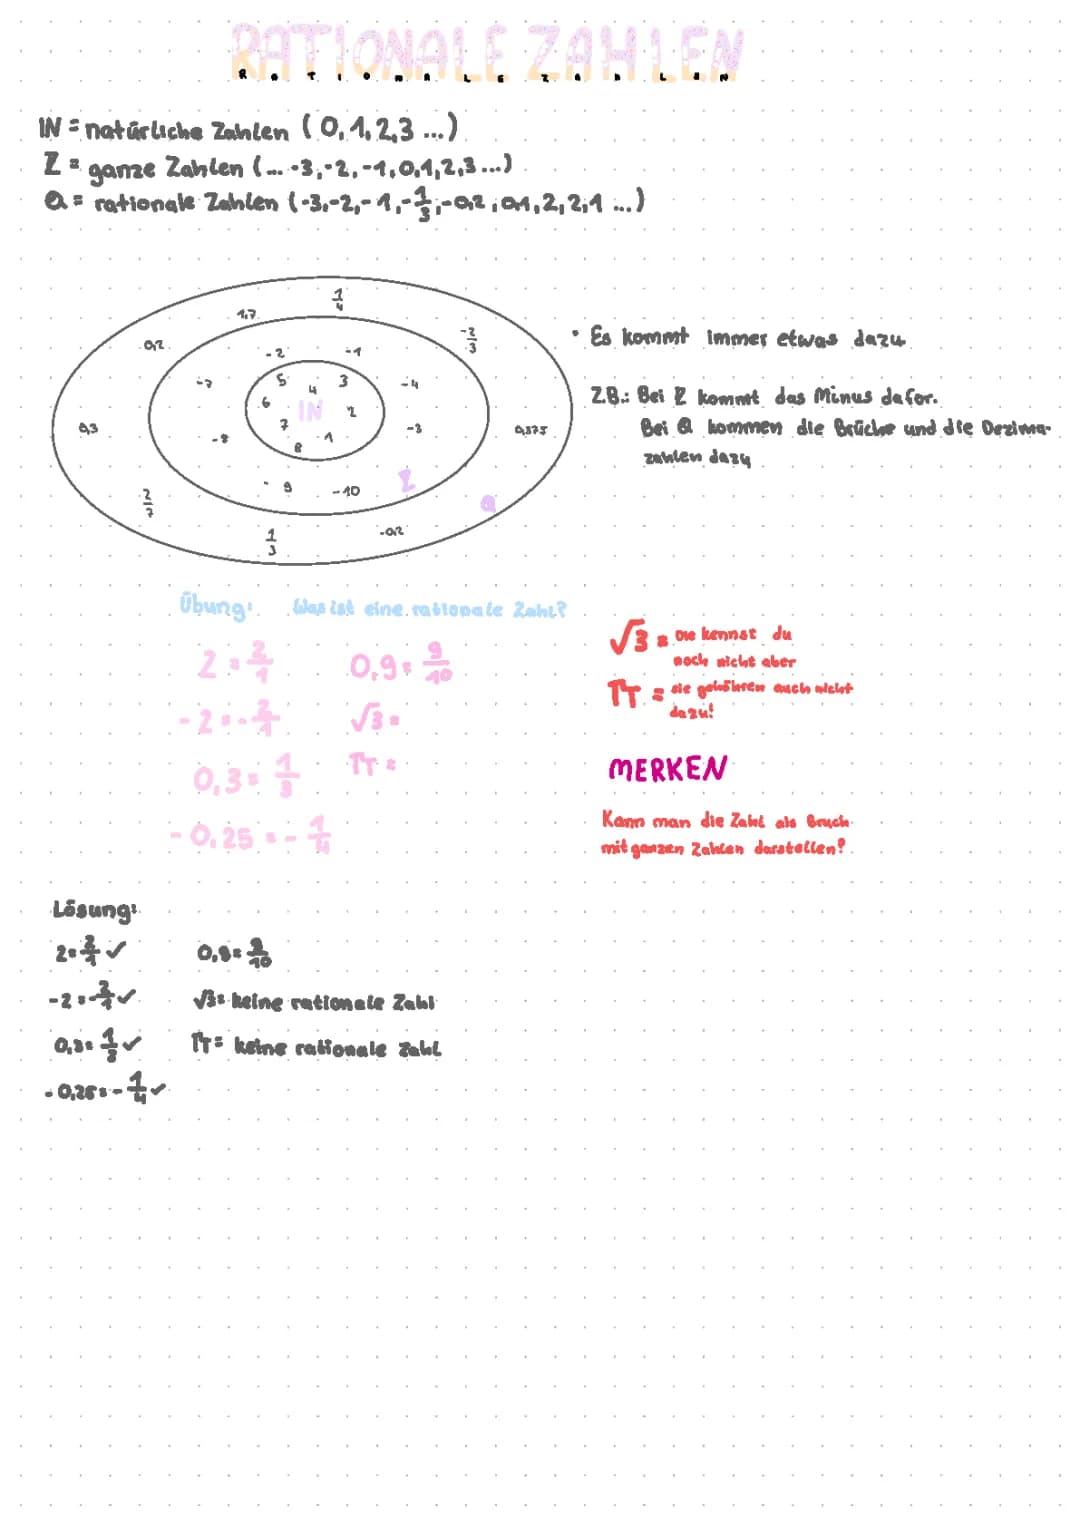 RATIONALE ZAHLEN
RATIONALE ZAHLEN
IN = natürliche Zahlen (0,1,2,3...)
Z = ganze Zahlen (... -3,-2,-1,0,1,2,3...)
Q = rationale Zahlen (-3,-2,-1,-1/3,-0,2,0,1,2,2,1...)
1/4
1,7
0,2
-2/3
-2
-1
-7
5
4
3
-4
6
IN
2
0,3
-8
7
1
-3
0,375
8
- 9
-10
Z
2/7
Q
1/3
-0,2
• Es kommt immer etwas dazu
Z.B.: Bei Z kommt das Minus dafor.
Bei Q kommen die Brüche und die Dezima-
zahlen dazu
Übung: Was ist eine rationale Zahl?
2 = 2/1
0,9 = 9/10
-2 = -2/1
√3 =
0,3 = 1/3
π =
-0,25 = -1/4
√3 = Die kennst du
noch nicht aber
π = sie gehören auch nicht
dazu!
MERKEN
Kann man die Zahl als Bruch
mit ganzen Zahlen darstellen?
Lösung:
2 = 2/1 ✓
0,9 = 9/10
-2 = -2/1 ✓
√3 = keine rationale Zahl
0,3 = 1/3 ✓
π = keine rationale Zahl
-0,25 = -1/4 ✓